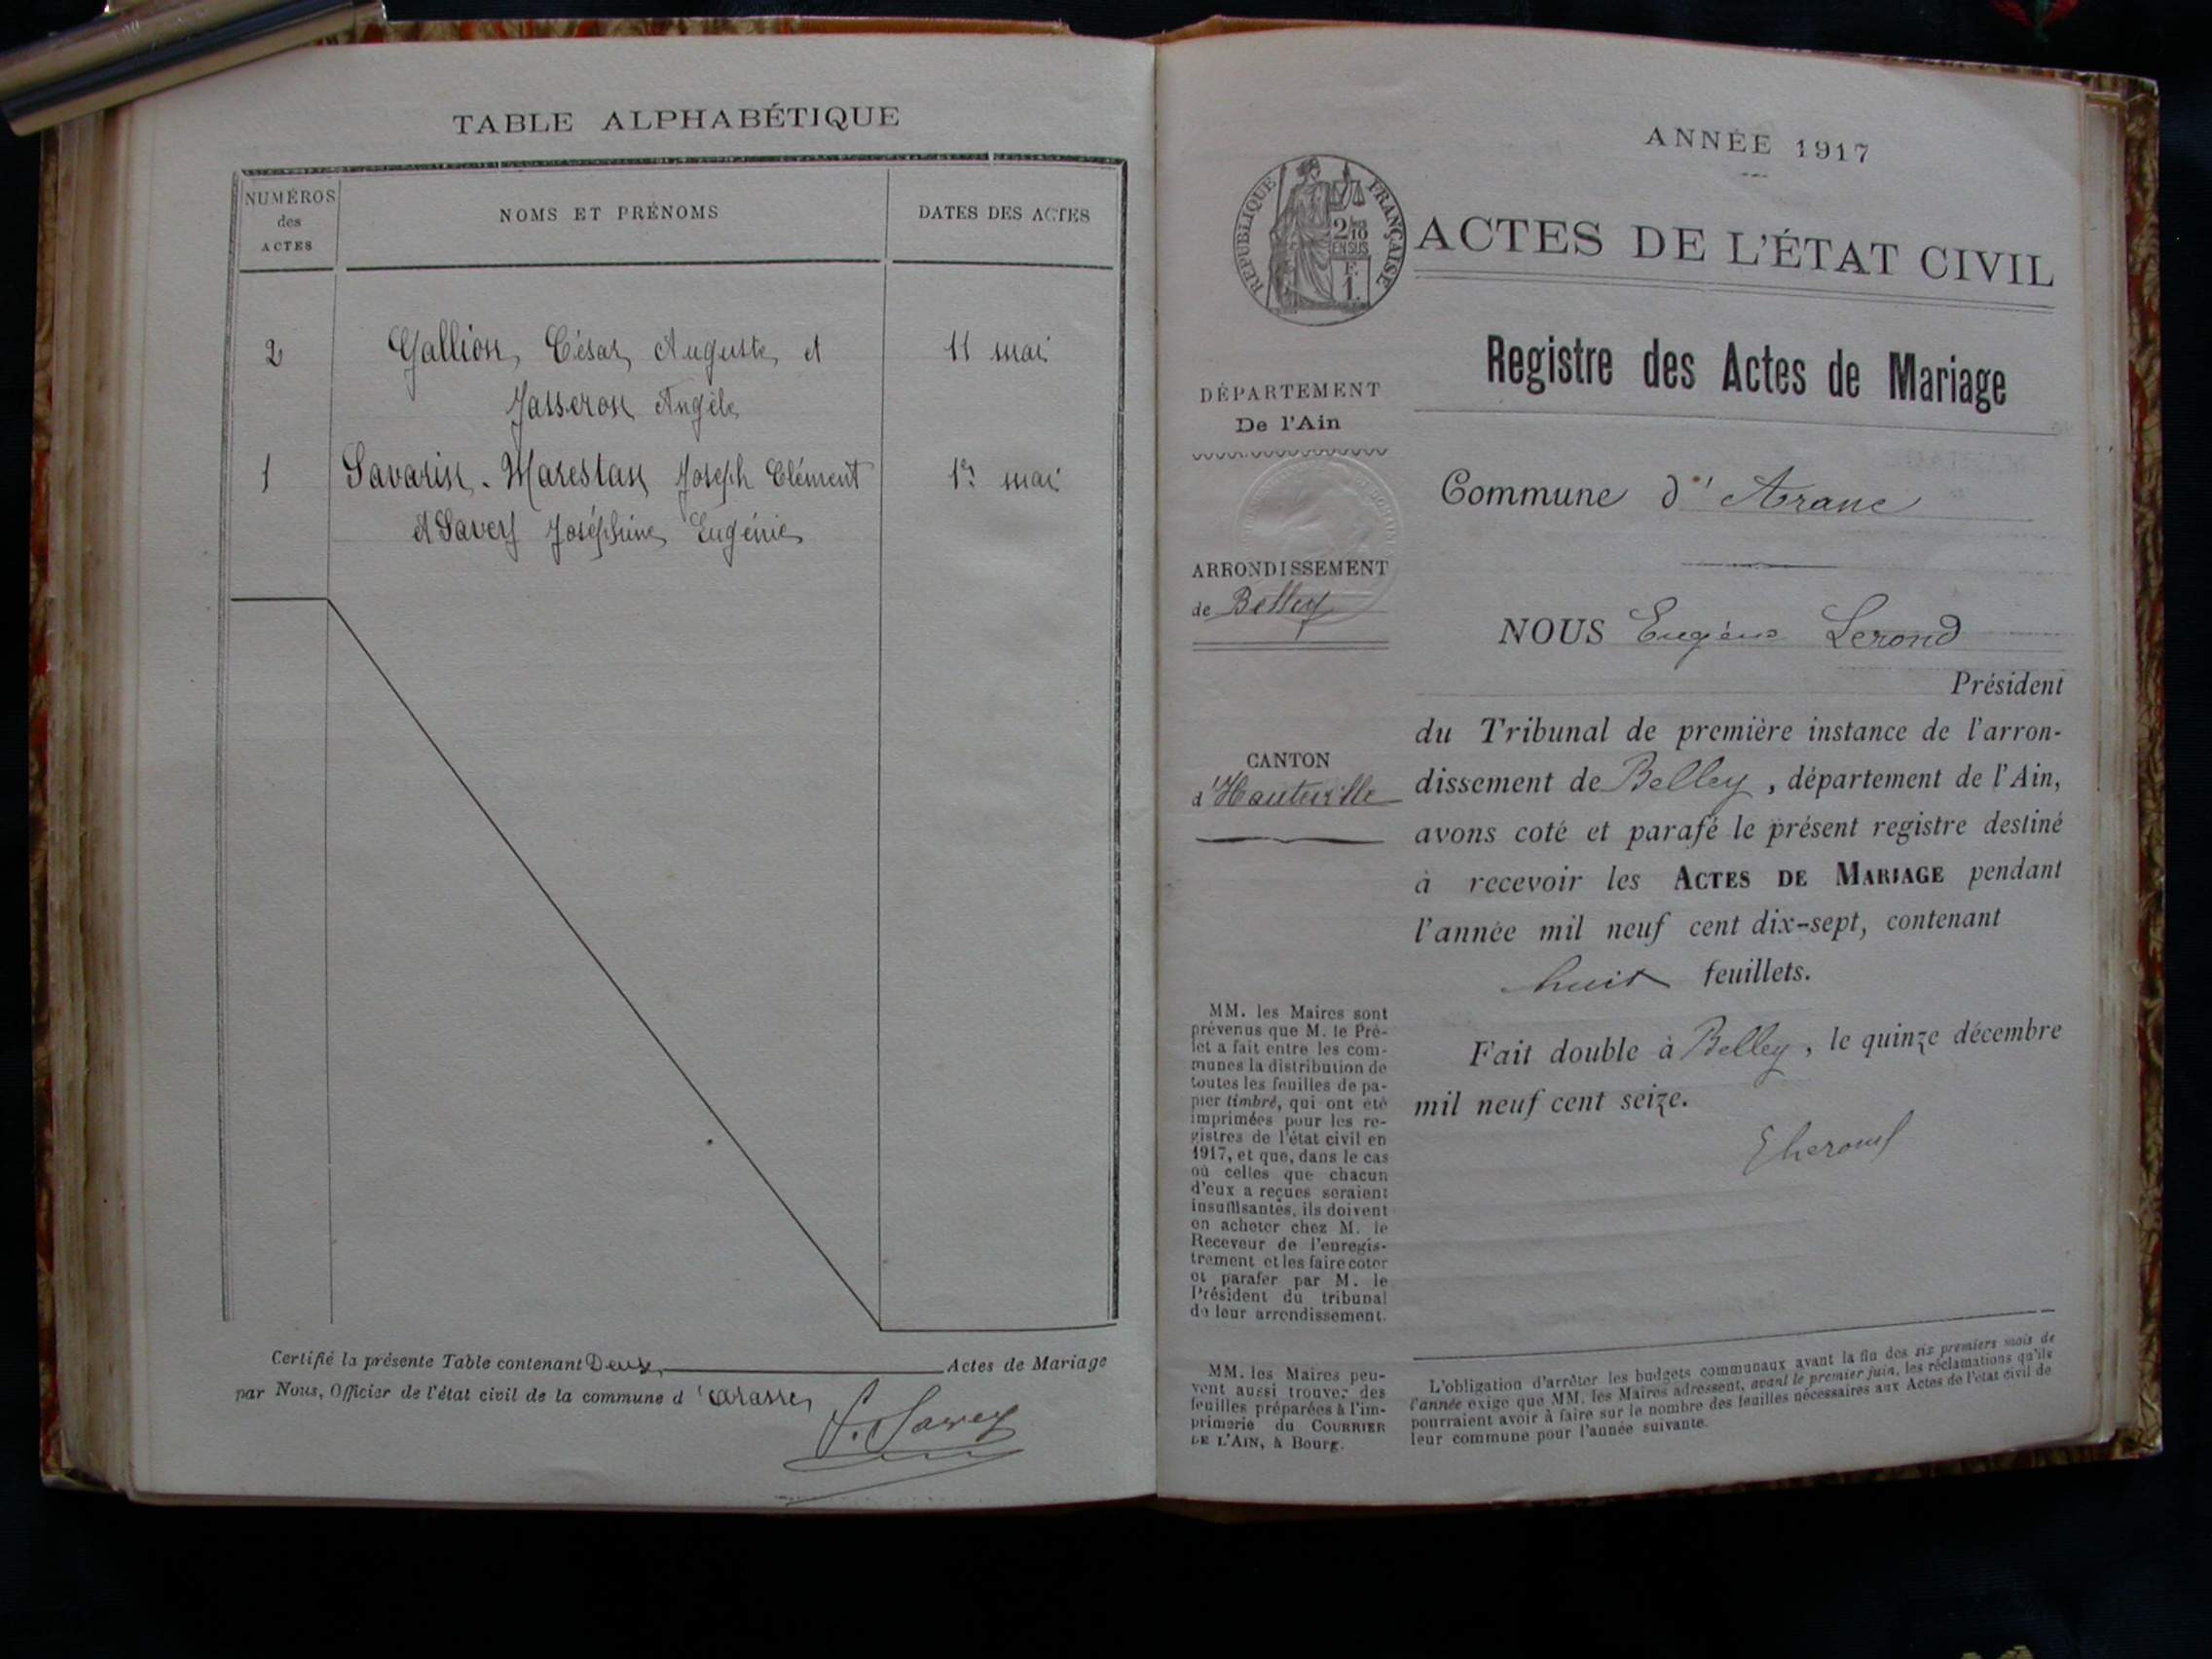 TABLE ALPHABÉTIQUE
NUMÉROS
des
ACTES
NOMS ET PRÉNOMS
DATES DES ACTES
2 Gallion, César, Auguste, et 11 mai
Jasseron Angèle
1 Savarin-Marestan Joseph Clément 1er mai
et Savey Joséphine Eugénie
Certifié la présente Table contenant Deux Actes de Mariage
par Nous, Officier de l'état civil de la commune d'
Savey
ANNÉE 1917
RÉPUBLIQUE FRANÇAISE
2/10
EN SUS
F.
1
ACTES DE L'ÉTAT CIVIL
Registre des Actes de Mariage
DÉPARTEMENT
De l'Ain
ARRONDISSEMENT
de Belley
CANTON
d'Hauteville
MM. les Maires sont
prévenus que M. le Pré-
fet a fait entre les com-
munes la distribution de
toutes les feuilles de pa-
pier timbré, qui ont été
imprimées pour les re-
gistres de l'état civil en
1917, et que, dans le cas
où celles que chacun
d'eux a reçues seraient
insuffisantes, ils doivent
en acheter chez M. le
Receveur de l'enregis-
trement et les faire coter
et parafer par M. le
Président du tribunal
de leur arrondissement.
MM. les Maires peu-
vent aussi trouver des
feuilles préparées à l'im-
primerie du COURRIER
DE L'AIN, à Bourg.
Commune d'Aranc
NOUS Eugène Lerond
Président
du Tribunal de première instance de l'arron-
dissement de Belley, département de l'Ain,
avons coté et parafé le présent registre destiné
à recevoir les ACTES DE MARIAGE pendant
l'année mil neuf cent dix-sept, contenant
huit feuillets.
Fait double à Belley, le quinze décembre
mil neuf cent seize.
L'obligation d'arrêter les budgets communaux avant la fin des six premiers mois de
l'année exige que MM. les Maires adressent, avant le premier juin, les réclamations qu'ils
pourraient avoir à faire sur le nombre des feuilles nécessaires aux Actes de l'état civil de
leur commune pour l'année suivante.